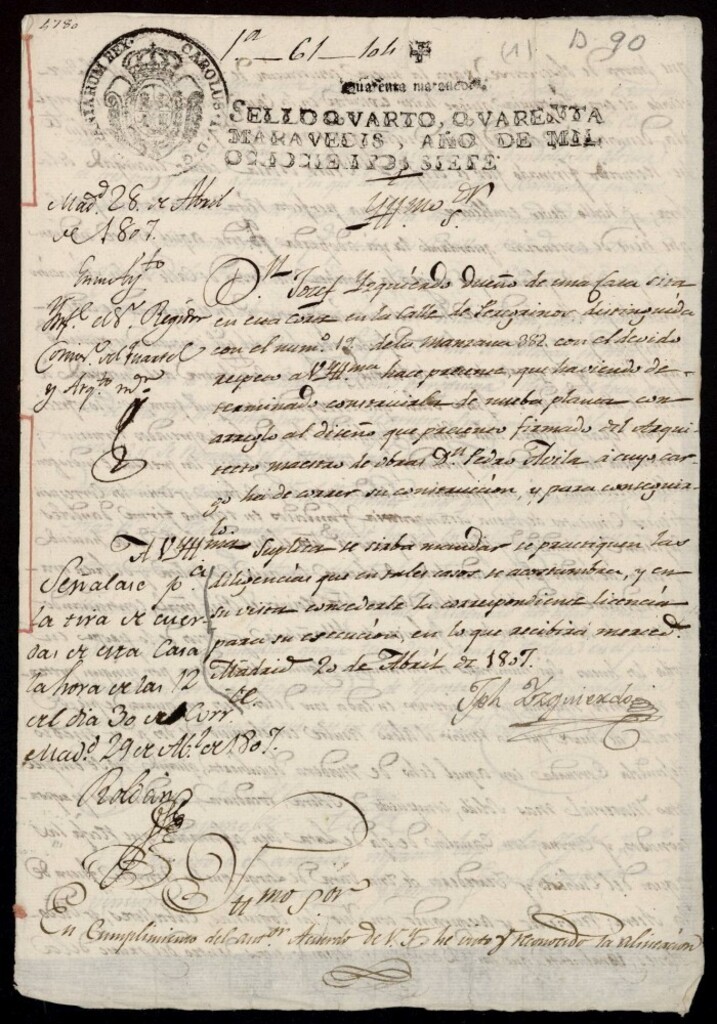 4780
1ª - 61 - 104
(1) B 90
HISPANIARUM REX. CAROLUS IV D. G.
Quarenta maravedis.
SELLO QVARTO, QVARENTA
MARAVEDIS, AÑO DE MIL
OCHOCIENTOS SIETE.
Yllmo Sr.
Dn. Josef Yzquierdo dueño de una Casa sita
en esta corte en la Calle de Peregrinos, distinguida
con el numº. 12 de la manzana 382 con el devido
respeto a V.Yllma. hace presente, que haviendo de-
terminado construirla de nueba planta con
arreglo al diseño que presento firmado del Arqui
tecto maestro de obras Dn. Pedro Avila à cuyo car
go ha de correr su construccion, y para conseguir
lo
A V.Yllma Suplica se sirba mandar se practiquen las
diligencias que en tales casos se acostumbra, y en
su vista concederle la correspondiente licencia
para su execución, en lo que recibirá merced.
Madrid 20 de Abril de 1807.
Jph Yzquierdo
Madd. 28 de Abril
de 1807.
Infe. el Sr. Regidor
Comisº. del Quartel
y Arqto. mor.
Señalase pª.
la tira de cuer-
das de esta Casa
la hora de las 12
el dia 30 del Corrte.
Madd. 29 de Abl. de 1807.
Roldan
Yllmo Sor.
En Cumplimiento del antor. Acuerdo de V.Y. he visto y reconocido la alineacion